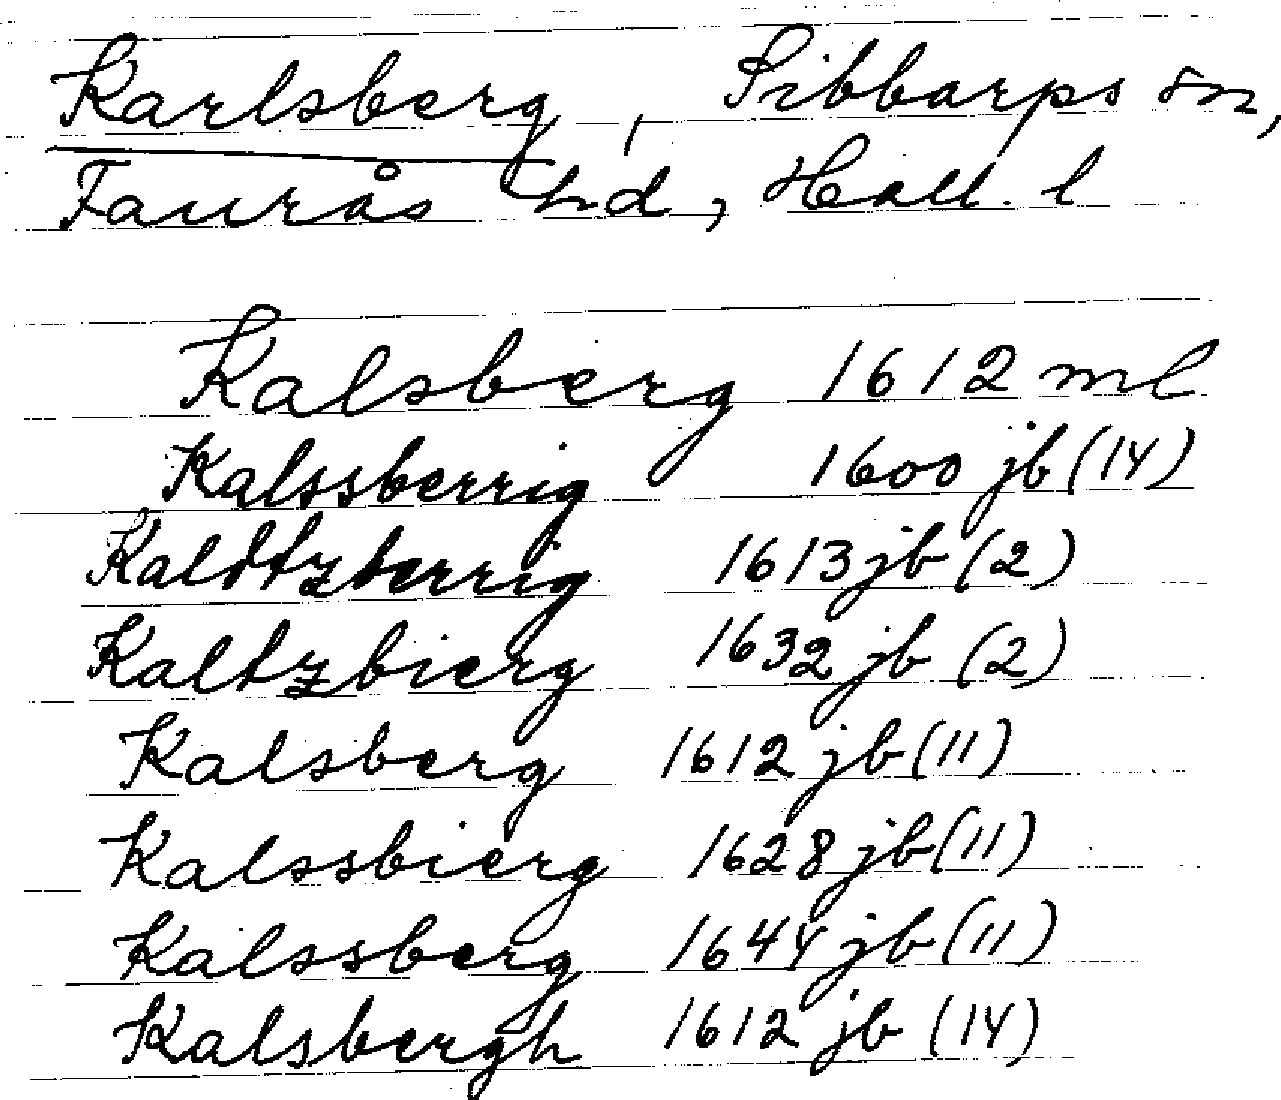 Karlsberg, Sibbarps sn,
Faurås hd, Hall. l
Kalsberg 1612 ml
Kalssberrig 1600 jb (14)
Kaldtzberrig 1613 jb (2)
Kaltzbierg 1632 jb (2)
Kalsberg 1612 jb (11)
Kalssbierg 1628 jb (11)
Kalssberg 1644 jb (11)
Kalsbergh 1612 jb (14)